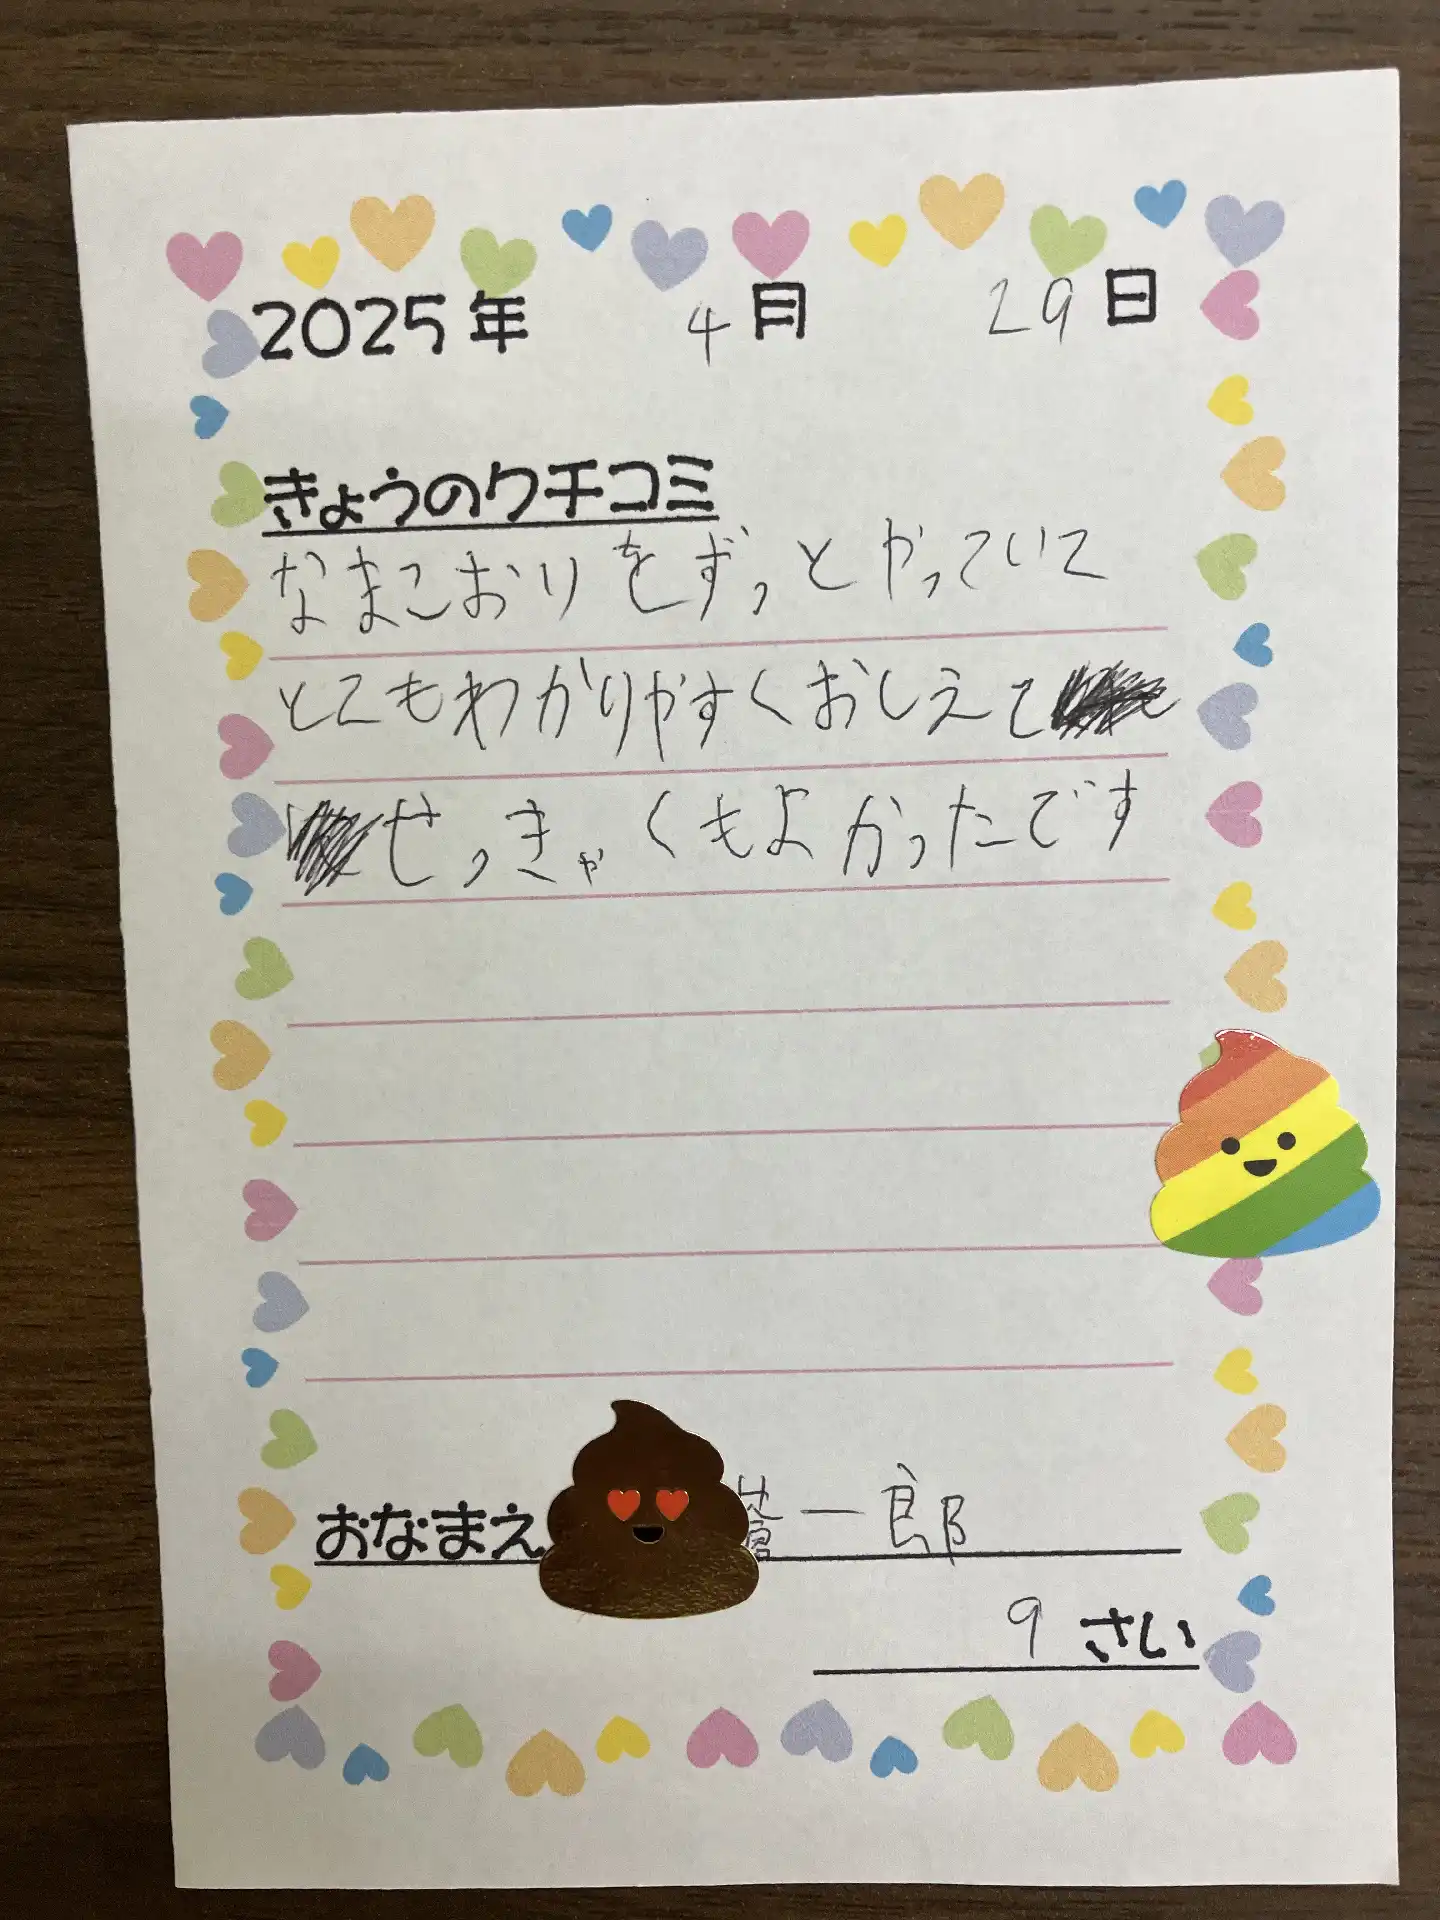 2025年 4月 29日
きょうのクチコミ
なまこおりをずっとやっていて
とてもわかりやすくおしえて
せっきゃくもよかったです
おなまえ 一郎
9 さい